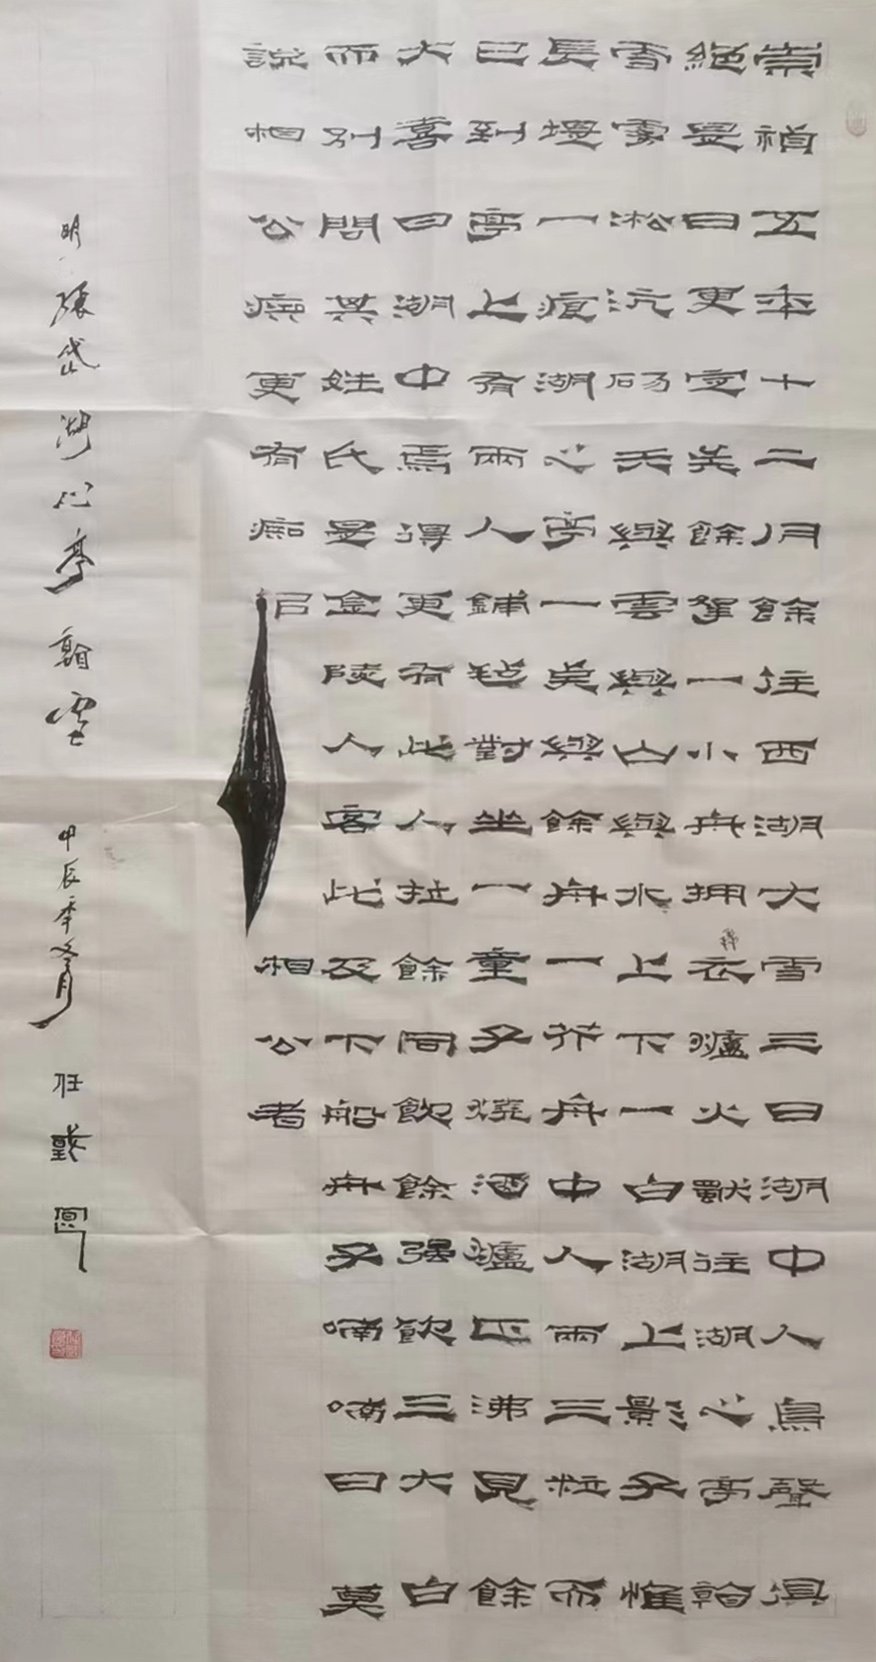 崇禎五年十二月餘往西湖大雪三日湖中人鳥聲俱
絕是日更定矣餘拏一小舟拥毳衣爐火獸往湖心亭看
雪霧淞沆砀天與雲與山與水上下一白湖上影子惟
長堤一痕湖心亭一奌與餘舟一芥舟中人兩三粒而
已到亭上有兩人鋪毡對坐一童子燒酒爐正沸見餘
大喜曰湖中焉得更有此人拉餘同飲餘强飲三大白
而別問其姓氏是金陵人客此及下船舟子喃喃曰莫
說相公痴更有痴佀相公者
明張岱湖心亭看雪 甲辰年冬月 任